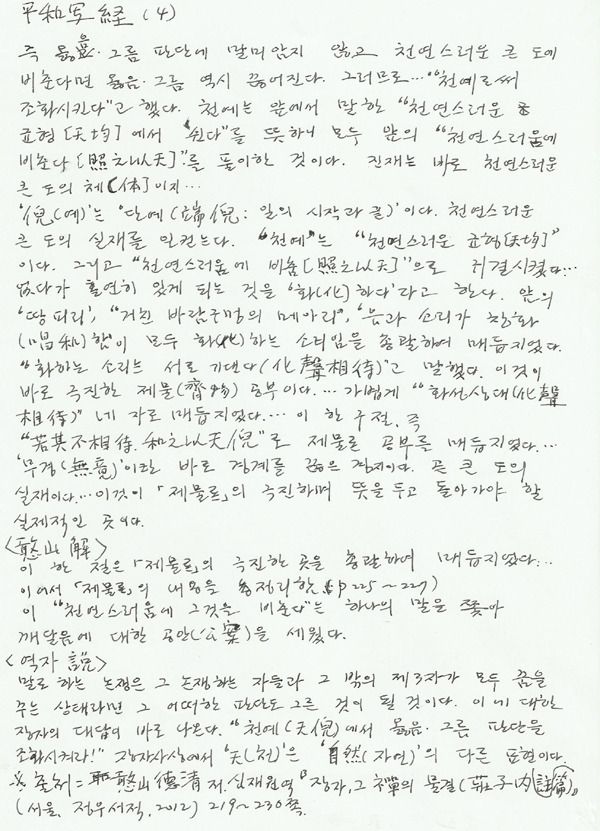 平和写経 (4)
즉 옳음·그름 판단에 말미암지 않고 천연스러운 큰 도에
비춘다면 옳음·그름 역시 끊어진다. 그러므로…"천예로써
조화시킨다"고 했다. 천예는 앞에서 말한 "천연스러운
균형[天均]에서 쉰다"를 뜻하니 모두 앞의 "천연스러움에
비춘다[照之以天]"를 풀이한 것이다. 진재는 바로 천연스러운
큰 도의 체[体]이지…
'倪(예)'는 '단예(端倪: 일의 시작과 끝)'이다. 천연스러운
큰 도의 실재를 일컫는다. "천예"는 "천연스러운 균형[天均]"
이다. 그리고 "천연스러움에 비춤[照之以天]"으로 귀결시켰다…
없다가 홀연히 있게 되는 것을 '화(化)하다'라고 한다. 앞의
'땅 피리', "거친 바람구멍의 메아리", '음과 소리가 창화
(唱和)함'이 모두 화(化)하는 소리임을 총괄하여 매듭지었다.
"화하는 소리는 서로 기대다(化聲相待)"고 말했다. 이것이
바로 극진한 제물(齊物) 공부이다.… 가볍게 "화성상대(化聲
相待)" 네 자로 매듭지었다.… 이 한 구절, 즉
"若其不相待. 和之以天倪"로 제물론 공부를 매듭지었다.…
'무경(無竟)'이란 바로 경계를 끊은 경지이다. 곧 큰 도의
실재이다.…이것이 「제물론」의 극진하며 뜻을 두고 돌아가야 할
실제적인 곳이다.
<憨山 解>
이 한 절은 「제물론」의 극진한 곳을 총괄하여 매듭지었다…
이어서 「제물론」의 내용을 총정리함.(p 225~227)
이 "천연스러움에 그것을 비춘다"는 하나의 말을 좇아
깨달음에 대한 공안(公案)을 세웠다.
<역자 説>
말로 하는 논쟁은 그 논쟁하는 자들과 그 밖의 제3자가 모두 꿈을
꾸는 상태라면 그 어떠한 판단도 그른 것이 될 것이다. 이에 대한
장자의 대답이 바로 나온다. "천예(天倪)에서 옳음·그름 판단을
조화시켜라!" 장자사상에서 '天(천)'은 '自然(자연)'의 다른 표현이다.
※ 출처= 憨山德清 저. 심재원 역 『장자, 그 禪의 물결(莊子內篇註)』
(서울, 정우서적, 2012) 219~230쪽.